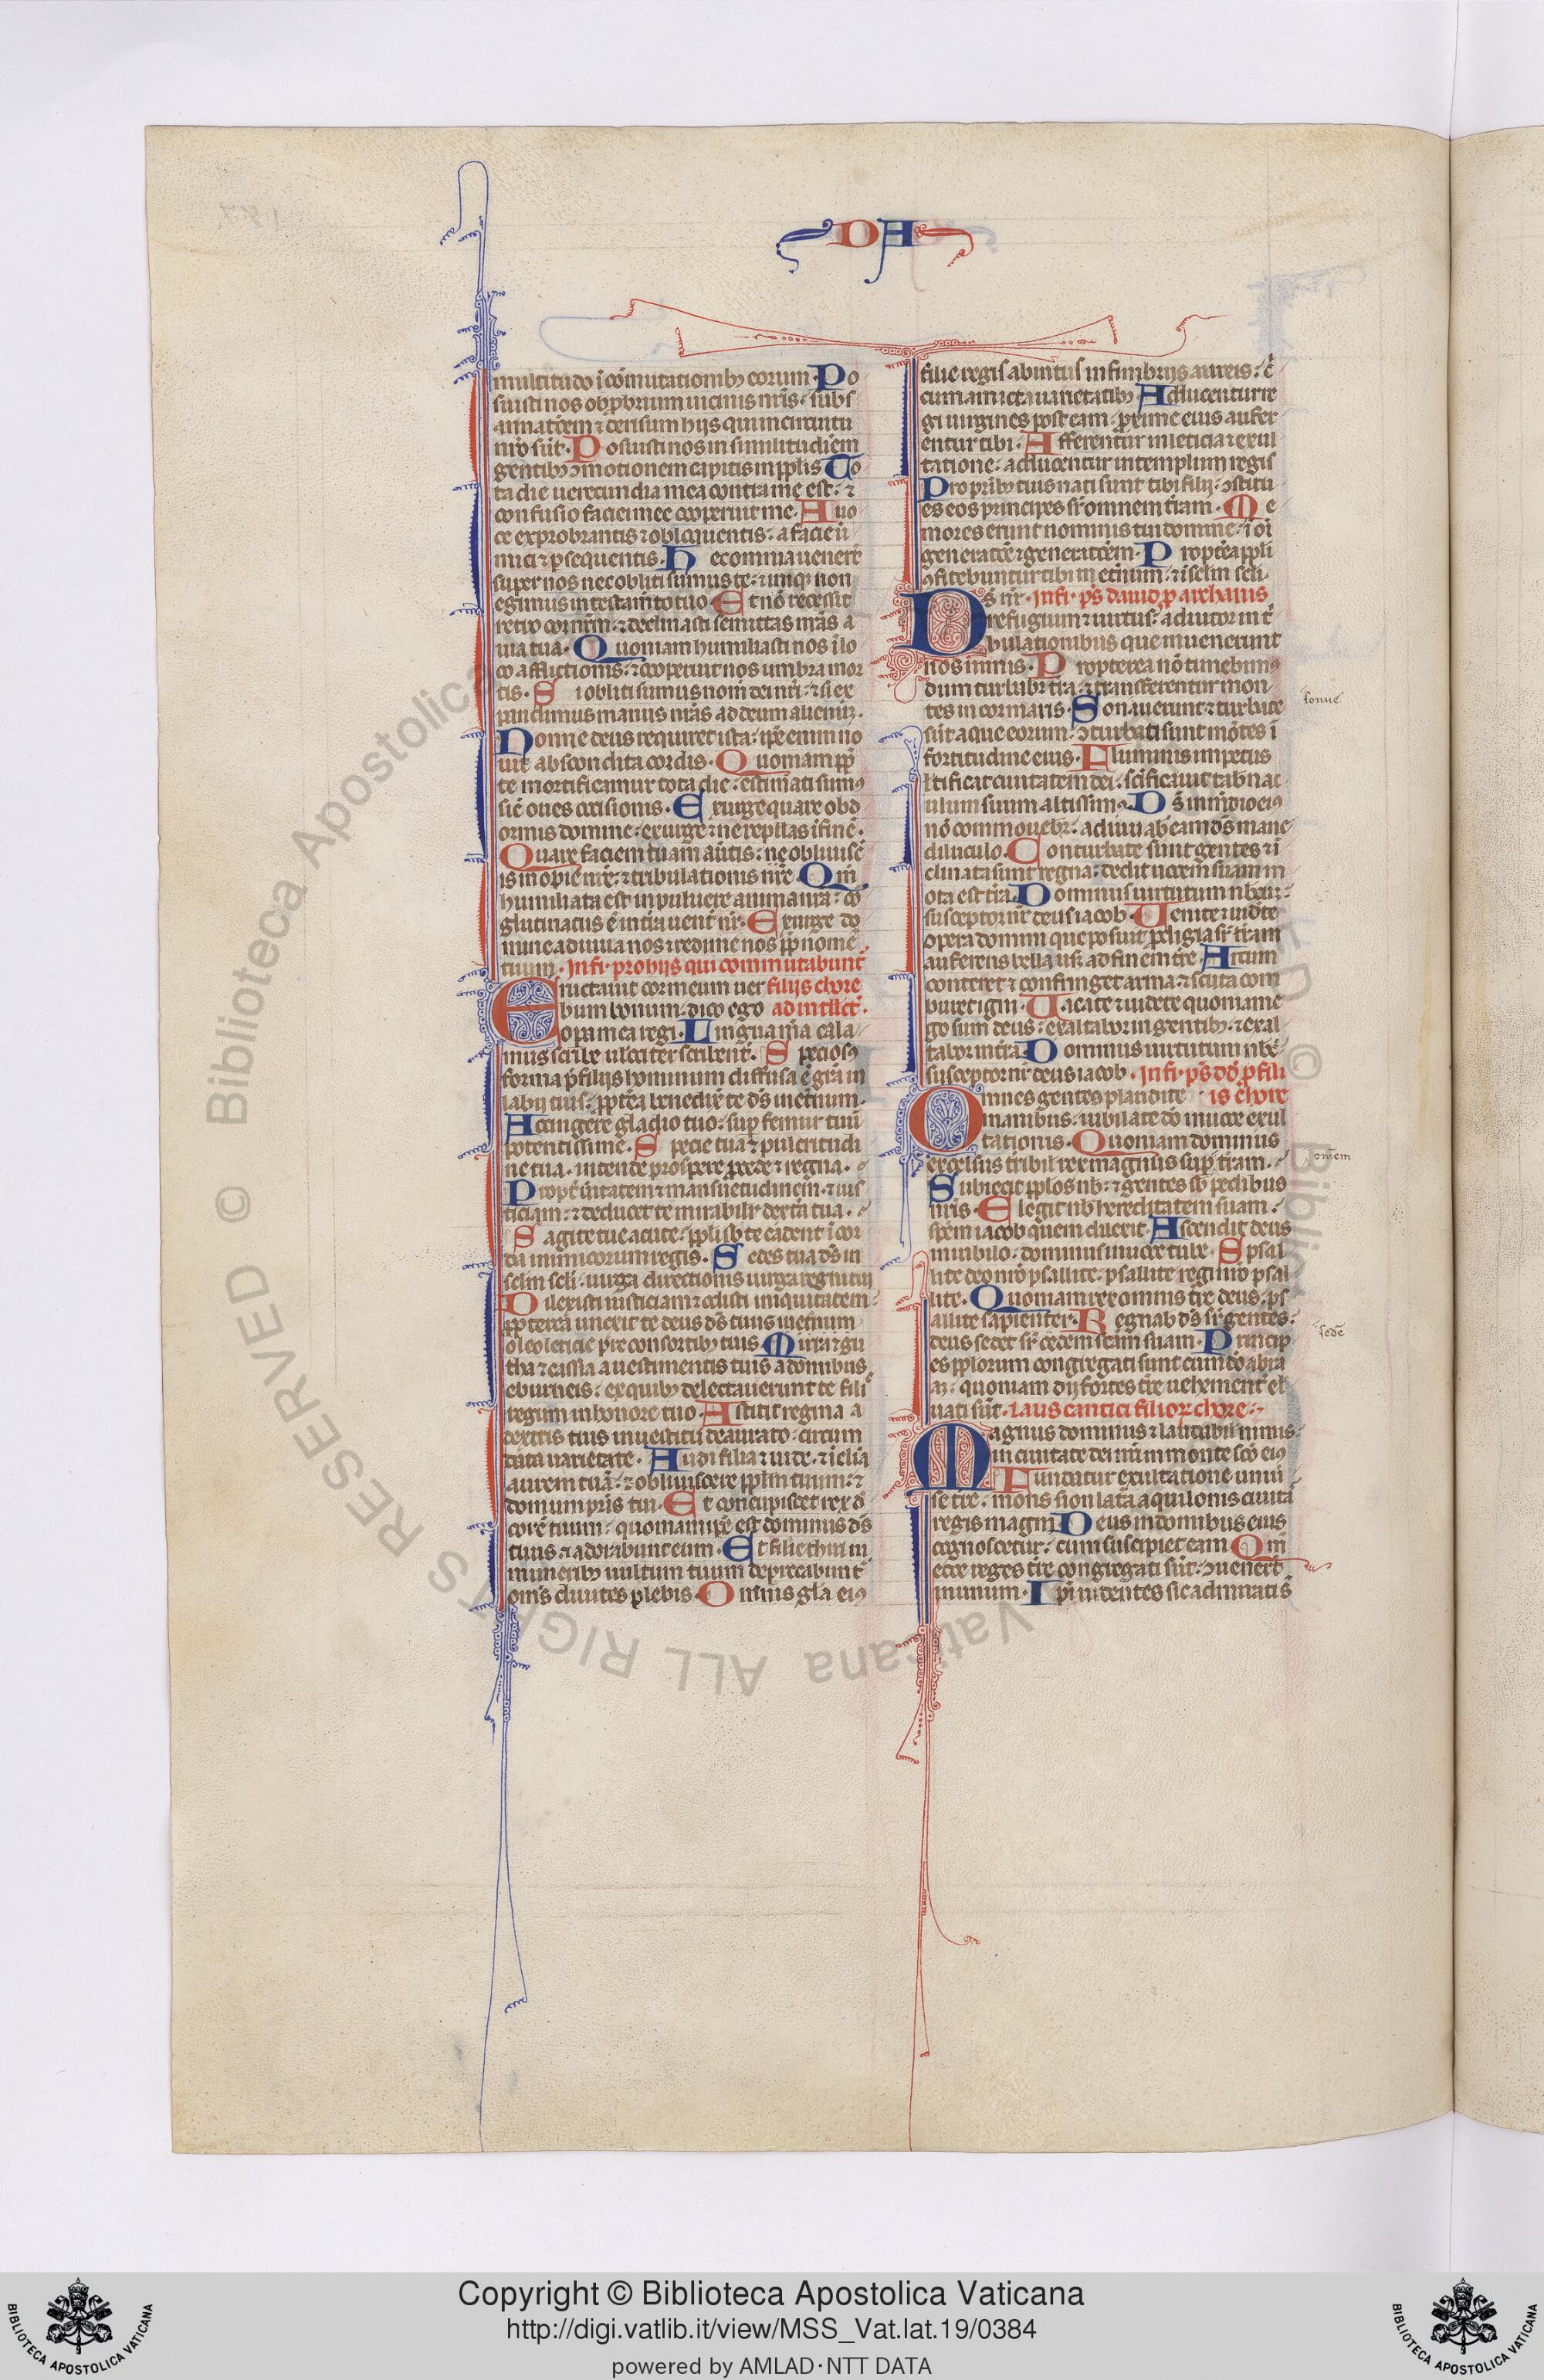 DA
multitudo i comutationib; eorum. Po
suisti nos obprbrium uicinis nris: subs
annatoem ⁊ derisum hijs qui incircuitu
nro sūt. Posuisti nos in similitudiem
gentib; ↄmotionem capitis in pplis To
ta die uerecundia mea contra me est: ⁊
confusio faciei mee cooperuit me. A uo
ce exprobrantis ⁊ obloquentis: a facie ini
mici ⁊ psequentis. Hec omnia uenert̄
super nos nec obliti sumus te: ⁊ iniq; non
egimus in testam̄to tuo. Et nō recessit
retro cor nr̄m: ⁊ declinasti semitas nr̄as a
uia tua. Quoniam humiliasti nos i lo
co afflictionis: ⁊ cooperuit nos umbra mor
tis. Si obliti sumus nom̄ dei nr̄i: ⁊ si ex
pandimus manus nr̄as ad deum alienū.
Nonne deus requiret ista: ipe enim no
uit abscondita cordis. Quoniam pp
te mortificamur tota die: estimati sum9
sic̄ oues occisionis. Exurge quare obd
ormis domine: exurge ⁊ ne repellas i finē.
Quare faciem tuam au̅tis: ne obliuisc̄
is inopie nr̄e: ⁊ tribulationis nr̄e. Qm̄
humiliata est in puluere anima nr̄a: co
glutinatus ē in tr̄a uent̄ nr̄. Exurge do
mine adiuua nos ⁊ redime nos pp nomē
tuum. In fi. pro hijs qui commutabunt̄
Eructauit cor meum uer filijs chore
bum bonum: dico ego ad intllct̄.
opa mea regi. Lingua m̄a cala
mus scribe uelociter scribent̄. Speciosus
forma p̄ filijs hominum diffusa ē gr̄a in
labijs tuis: ppt̄ea benedix̄ te ds̄ in et̄num.
Accingere gladio tuo: sup femur tuū
potentissime. Specie tua ⁊ pulcritudi
ne tua. intende prospere pcede ⁊ regna.
Propt̄ uītatem ⁊ mansuetudinem: ⁊ ius
ticiam: ⁊ deducet te mirabilit̄ dext̄a tua.
Sagite tue acute: ppli sb te cadent i cor
da inimicorum regis. Sedes tua ds̄ in
sclm scli: uirga directionis uirga regni tui
Dilexisti iusticiam ⁊ odisti iniquitatem:
ppterea unxit te deus ds̄ tuus
oleo leticie pre consortib; tuis Mirra ⁊ gu
tha ⁊ cassia a uestimentis tuis a domibus
eburneis: ex quib; delectauerunt te filie
regum in honore tuo. Astitit regina a
dextris tuis in uestitu deaurato: circum
data uarietate. Audi filia ⁊ uide: ⁊ iclia
aurem tuā: ⁊ obliuiscere pplm tuum: ⁊
domum pr̄is tui. Et concupiscet rex d
corē tuum: quoniam ipe est dominus ds̄
tuus: ⁊ adorabunt eum. Et filie thiri in
munerib; uultum tuum deprecabunt̄
om̄s diuites plebis. Omnis gl̄a ei9
filie regis ab intus in fimbrijs aureis: c̄
cumamicta uarietatib; Adducentur re
gi uirgines post eam: proxime eius aufer
entur tibi. Afferentur in leticia ⁊ exul
tatione: adducentur in templum regis
Pro prib; tuis nati sunt tibi filij: ↄstitu
es eos principes sr̄ omnem tr̄am. Me
mores erunt nominis tui domine: i oi
generatōe ⁊ generatōem. Propt̄ea ppli
ↄfitebuntur tibi in et̄num: ⁊ i sclm scli.
Ds̄ nr̄ In fi. ps̄ dauid p archanis
refugium ⁊ uirtus: adiutor in t̄
bulationibus que inuenerunt
nos nimis. Propterea nō timebim9
dum turbabr̄ tr̄a: ⁊ transferentur mon
tes in cor maris. Sonauerunt ⁊ turbate
sūt aque eorum: ↄturbati sunt mōtes i
fortitudine eius. Fluminis impetus
letificat ciuitatem dei: scificauit tabnac
ulum suum altissim9. Ds̄ in m̄dio ei9
nō commouebr̄: adiuuab̄ eam ds̄ mane
diluculo. Conturbate sunt gentes ⁊ i
clinata sunt regna: dedit uocem suam m
ota est tr̄a. Dominus uirtutum nbcū:
susceptor nr̄ deus iacob. Uenite ⁊ uidete
opera domini que posuit pdigia sr̄ tr̄am
auferens bella us; ad finem tr̄e. Arcum
conteret ⁊ confringet arma: ⁊ scuta com
buret igni. Uacate ⁊ uidete quoniam e
go sum deus: exaltabor in gentib; ⁊ exal
tabor in tr̄a. Dominus uirtutum nbc:
susceptor nr̄ deus iacob. In fi. ps̄ dd̄ p fili
Omnes gentes plaudite is chore
manibus: iubilate dō in uoce exul
tationis. Quoniam dominus
excelsus tribil̄ rex magnus sup tr̄am.
Subiecit pplos nb: ⁊ gentes sb pedibus
nr̄is. Elegit nb hereditatem suam:
spēm iacob quem dilexit. Ascendit deus
in iubilo: dominus in uoce tube. Spsal
lite deo nr̄o psallite: psallite regi nr̄o psal
lite. Quoniam rex omnis tr̄e deus: ps
allite sapienter. Regnab̄ ds̄ sr̄ gentes:
deus sedet sr̄ sedem scām suam. Princip
es pplorum congregati sunt cum dō abra
am: quoniam dij fortes tr̄e uehement̄ el
uati sūt. Laus cantici filior̄ chore.
Magnus dominus ⁊ laudabil̄ nimis:
in ciuitate dei nr̄i in monte scō ei9
Fundatur exultatione uniū
se tr̄e: mons sion lat̄a aquilonis ciuita
regis magni Deus in domibus eius
cognoscetur: cum suscipiet eam Qm̄
ecce reges tr̄e congregati sūt: ↄuenert̄
in unum. Ipi uidentes sic admirati s̄
sonue
omem
sede
© Biblioteca Apostolica Vaticana ALL RIGHTS RESERVED
Copyright © Biblioteca Apostolica Vaticana
http://digi.vatlib.it/view/MSS_Vat.lat.19/0384
powered by AMLAD·NTT DATA
BIBLIOTECA APOSTOLICA VATICANA
BIBLIOTECA APOSTOLICA VATICANA